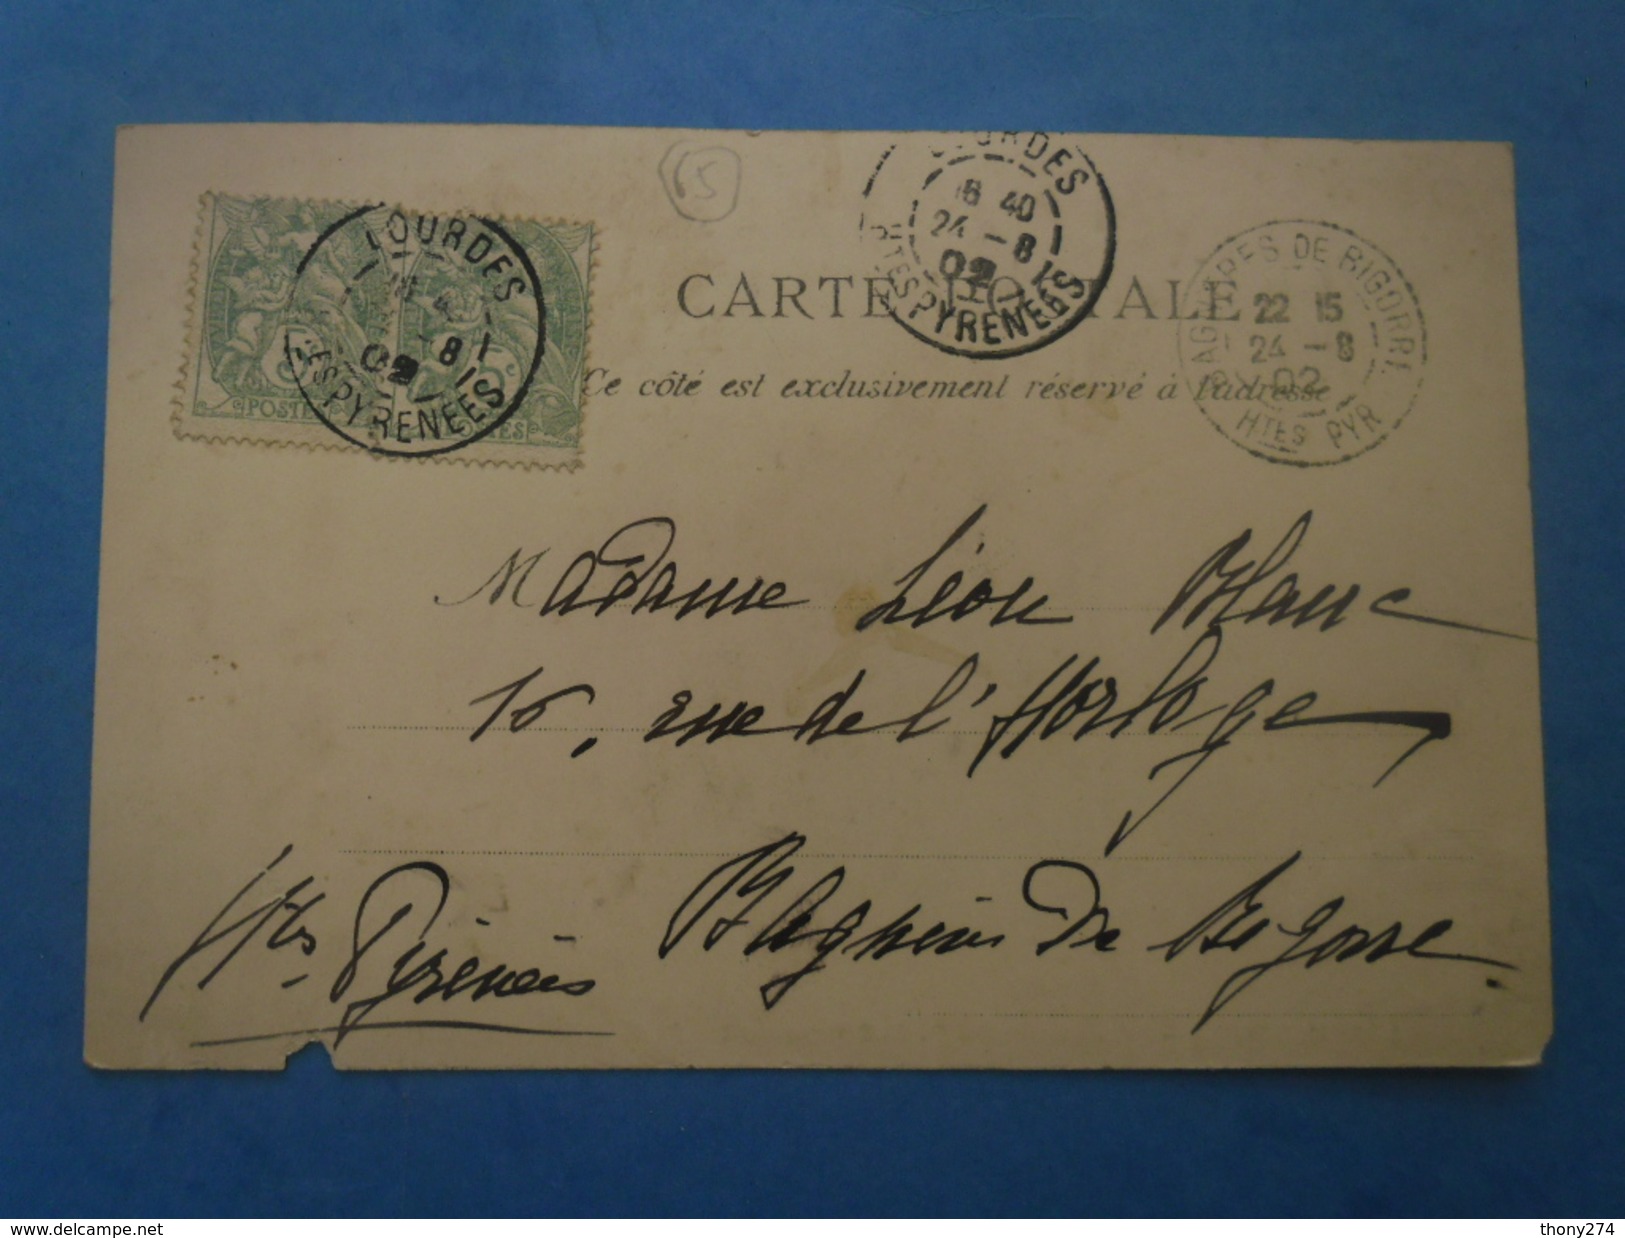 15
LOURDES
02
PYRENEES
5c
POSTES
LOURDES
16 40
24 - 8
02
HTES PYRENEES
BAGNERES DE BIGORRE
22 15
24 - 8
02
HTES PYR
CARTE POSTALE
Ce côté est exclusivement réservé à l'adresse
Madame Léon Blanc
16, rue de l'Horloge
Bagnères de Bigorre
Htes Pyrénées
www.delcampe.net
thony274